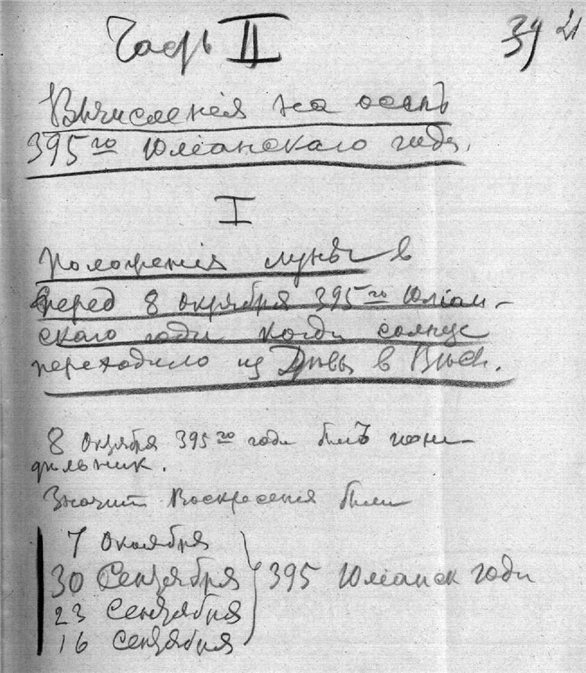 Часть II
39 21
Вычисленія на осень
395го Юліанскаго года.
I
Положенія луны в
перед 8 октября 395го Юліан-
скаго года когда солнце
переходило из Девы в Весы.
8 Октября 395го года былъ поне-
дельник.
Значит Воскресенія были
7 Октября
30 Сентября 395 Юліанск года
23 Сентября
16 Сентября